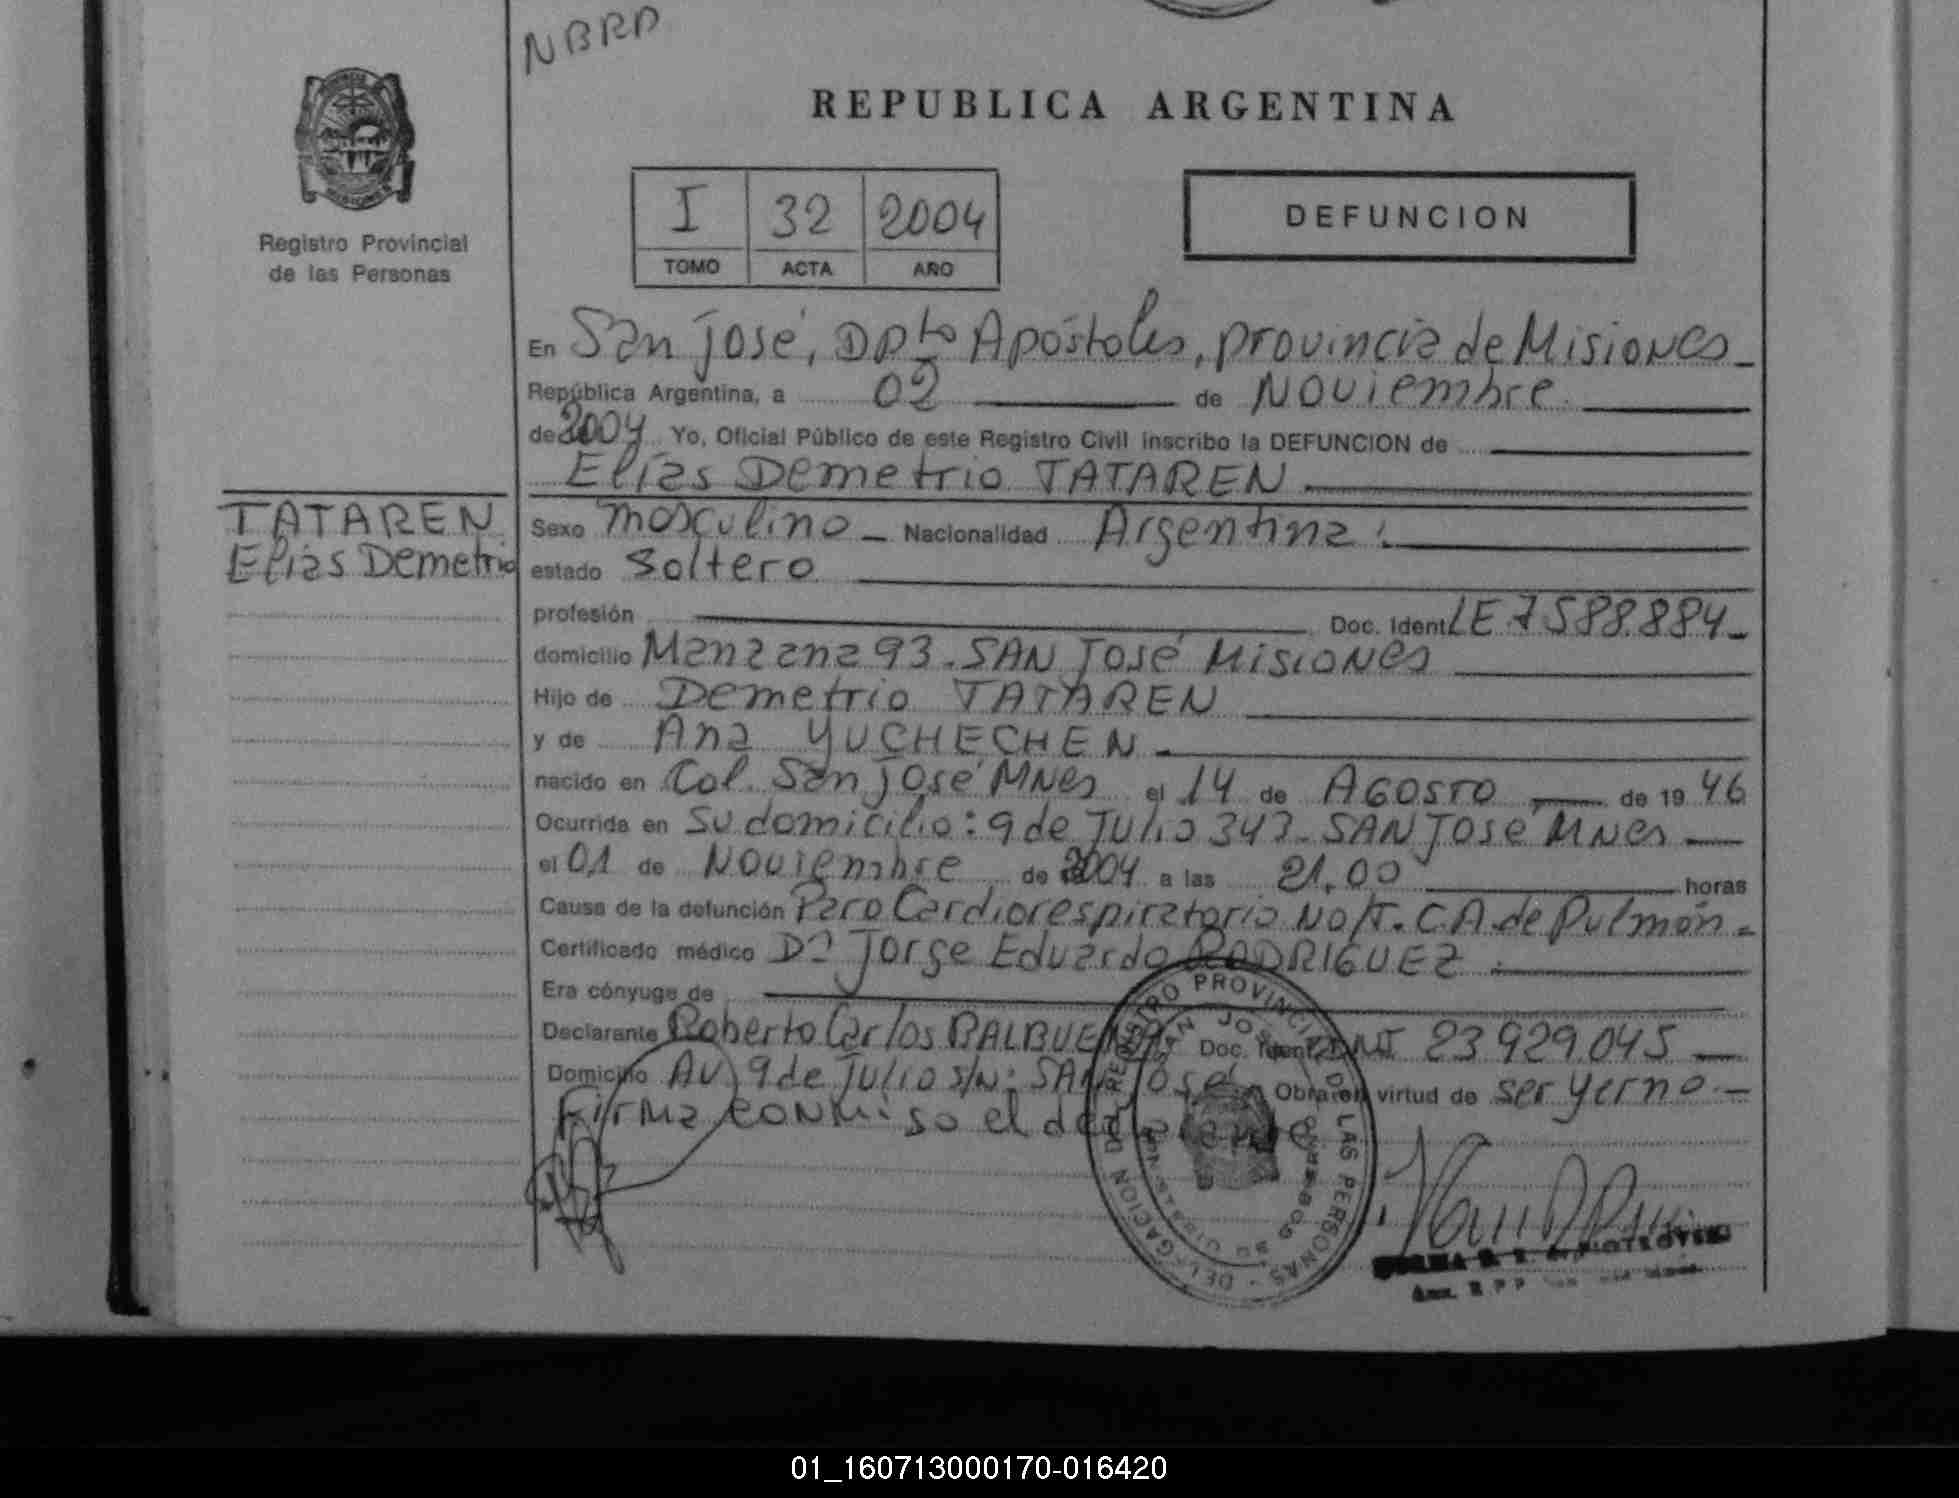 NBRD
REPUBLICA ARGENTINA
Registro Provincial
de las Personas
I 32 2004
TOMO ACTA AÑO
DEFUNCION
En San José, Dpto Apóstoles, provincia de Misiones
República Argentina, a 02 de Noviembre
de 2004 Yo, Oficial Público de este Registro Civil inscribo la DEFUNCION de
Elías Demetrio TATAREN
TATAREN
Elias Demetrio
Sexo masculino Nacionalidad Argentina
estado Soltero
profesión Doc. Ident. LE 7588.884
domicilio Manzana 93. SAN José Misiones
Hijo de Demetrio TATAREN
y de Ana YUCHECHEN
nacido en Col. San José Mnes el 14 de AGOSTO de 19 46
Ocurrida en Su domicilio: 9 de Julio 347. SAN José Mnes
el 01 de Noviembre de 2004 a las 21,00 horas
Causa de la defunción Paro Cardiorespiratorio No/T. C.A. de Pulmón
Certificado médico Dr Jorge Eduardo RODRIGUEZ
Era cónyuge de
Declarante Roberto Carlos BALBUENA Doc. Ident. DNI 23.929.045
Domicilio Av. 9 de Julio s/n: SAN José Obra en virtud de ser yerno
Firma conmiso el declarante
REGISTRO PROVINCIAL DE LAS PERSONAS - DELEGACION
SAN JOSE
01_160713000170-016420